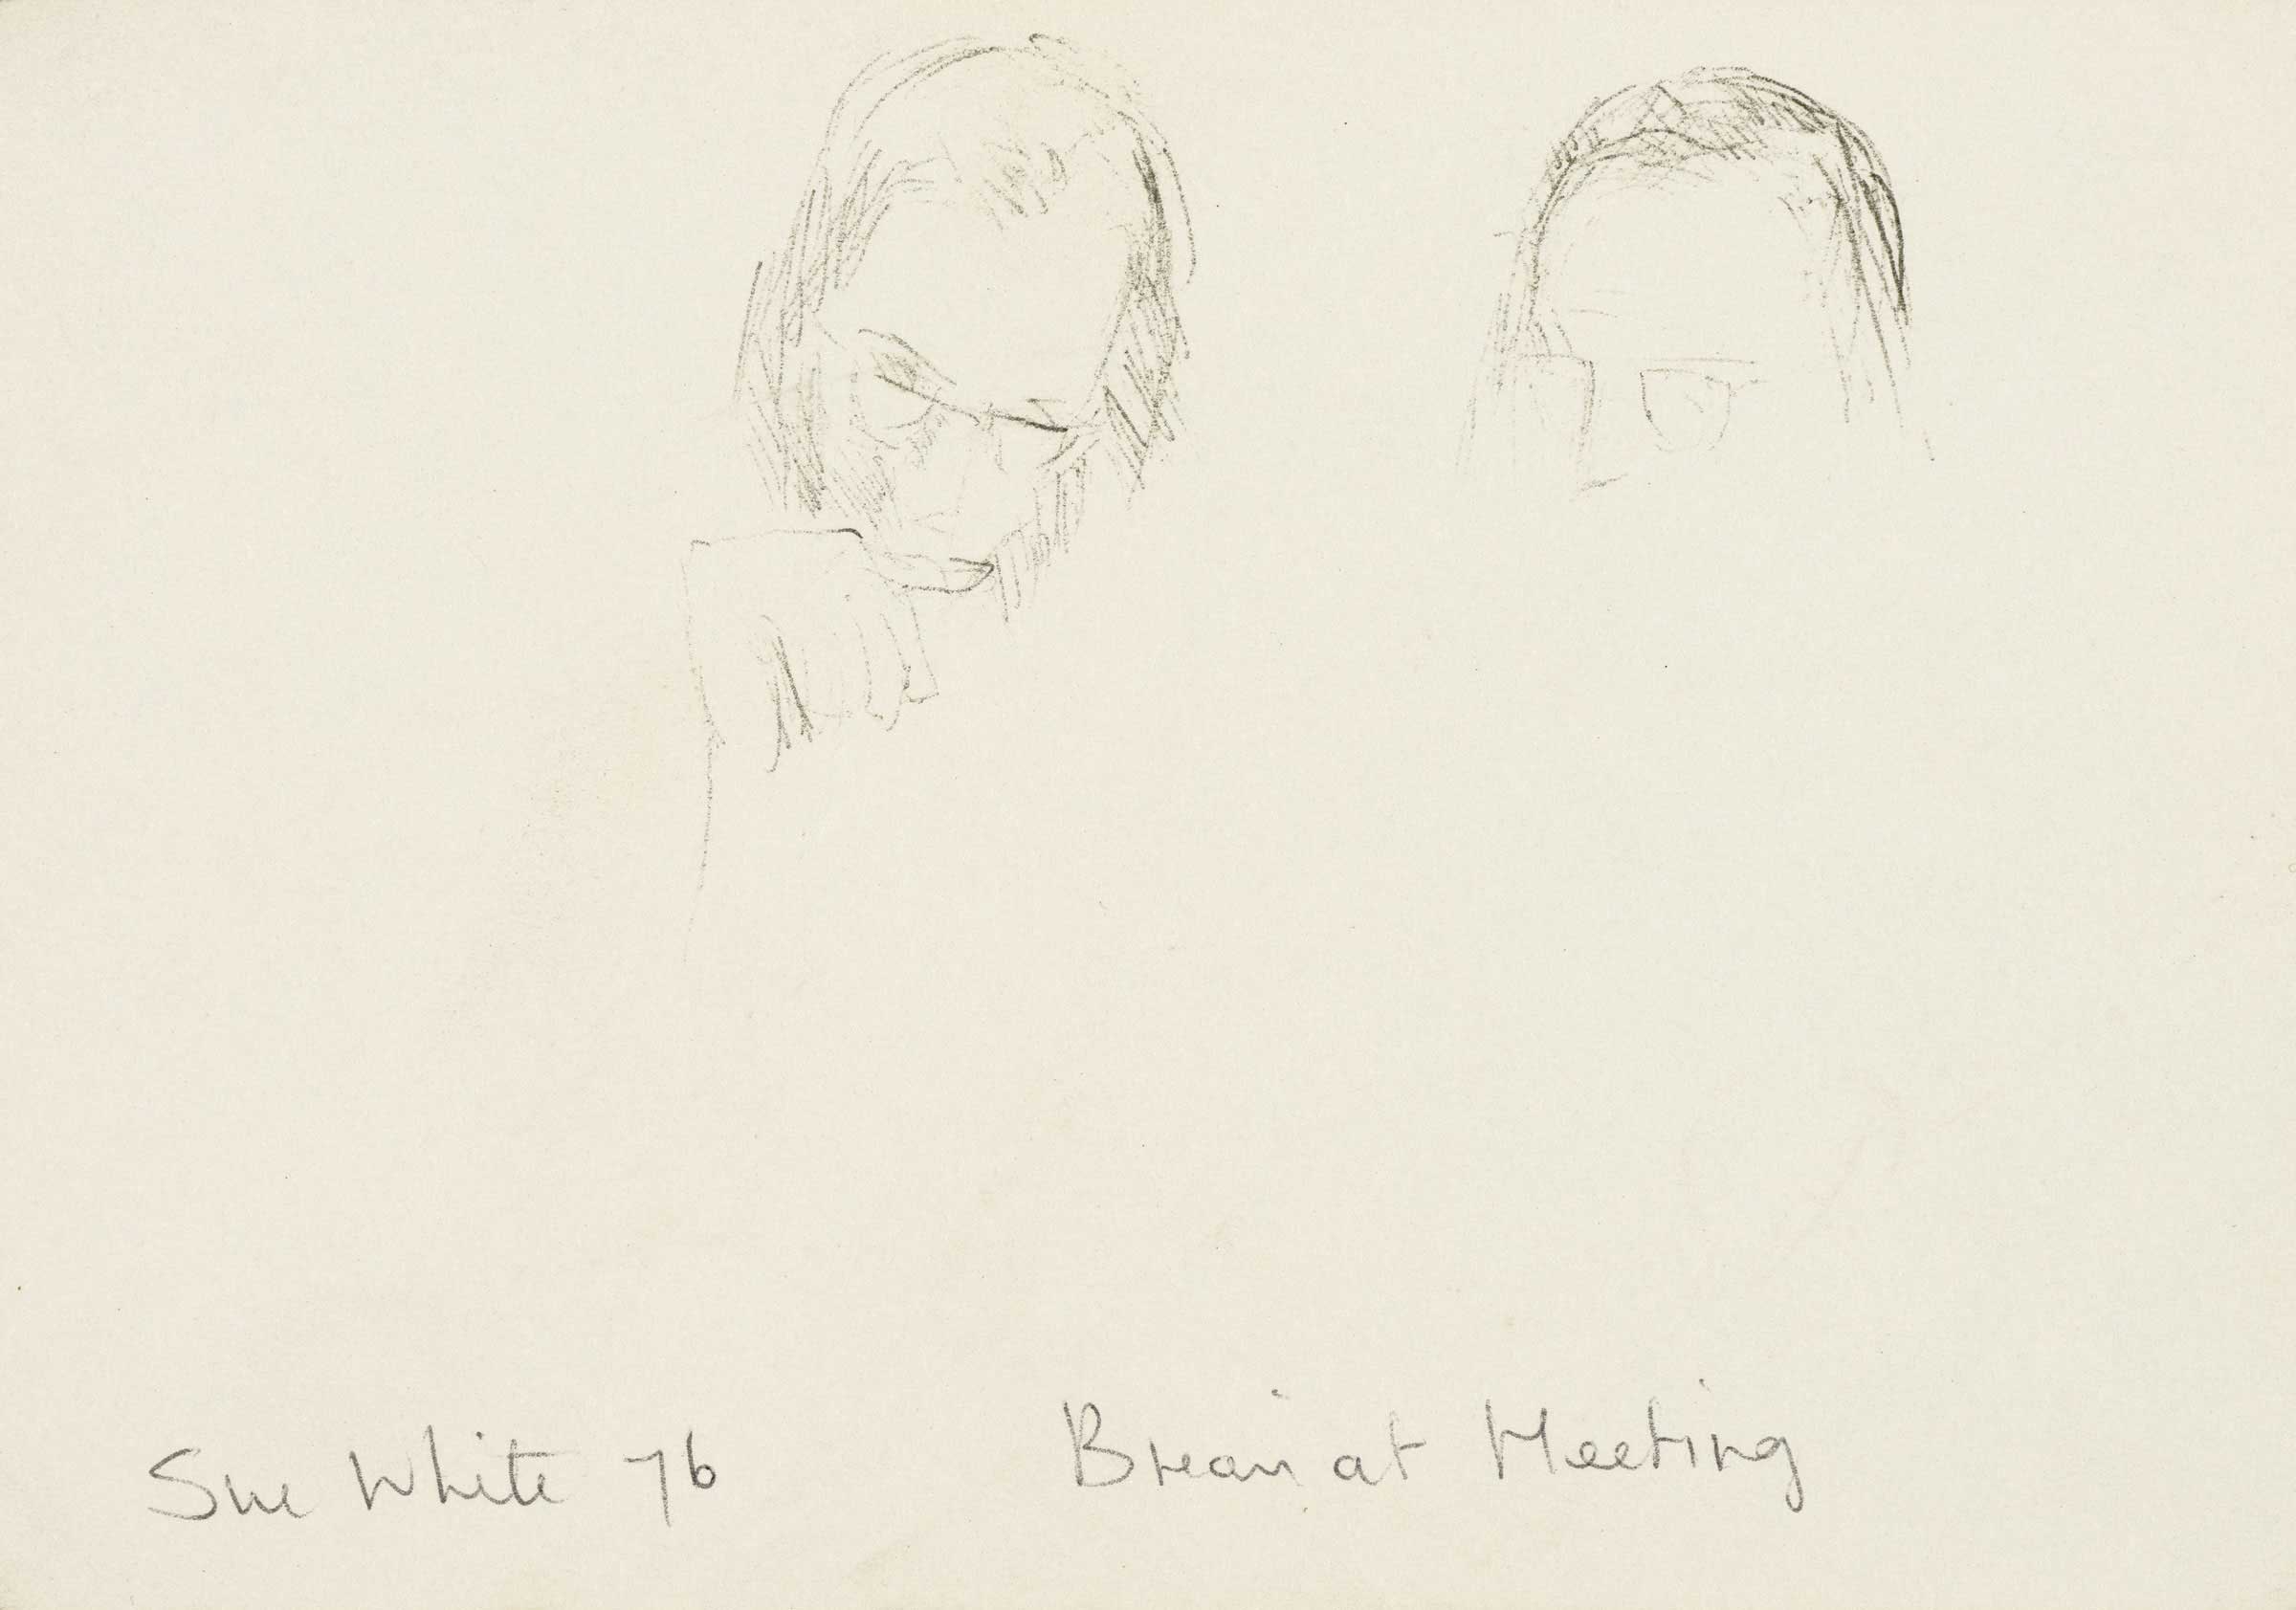 Sue White 76 at Meeting